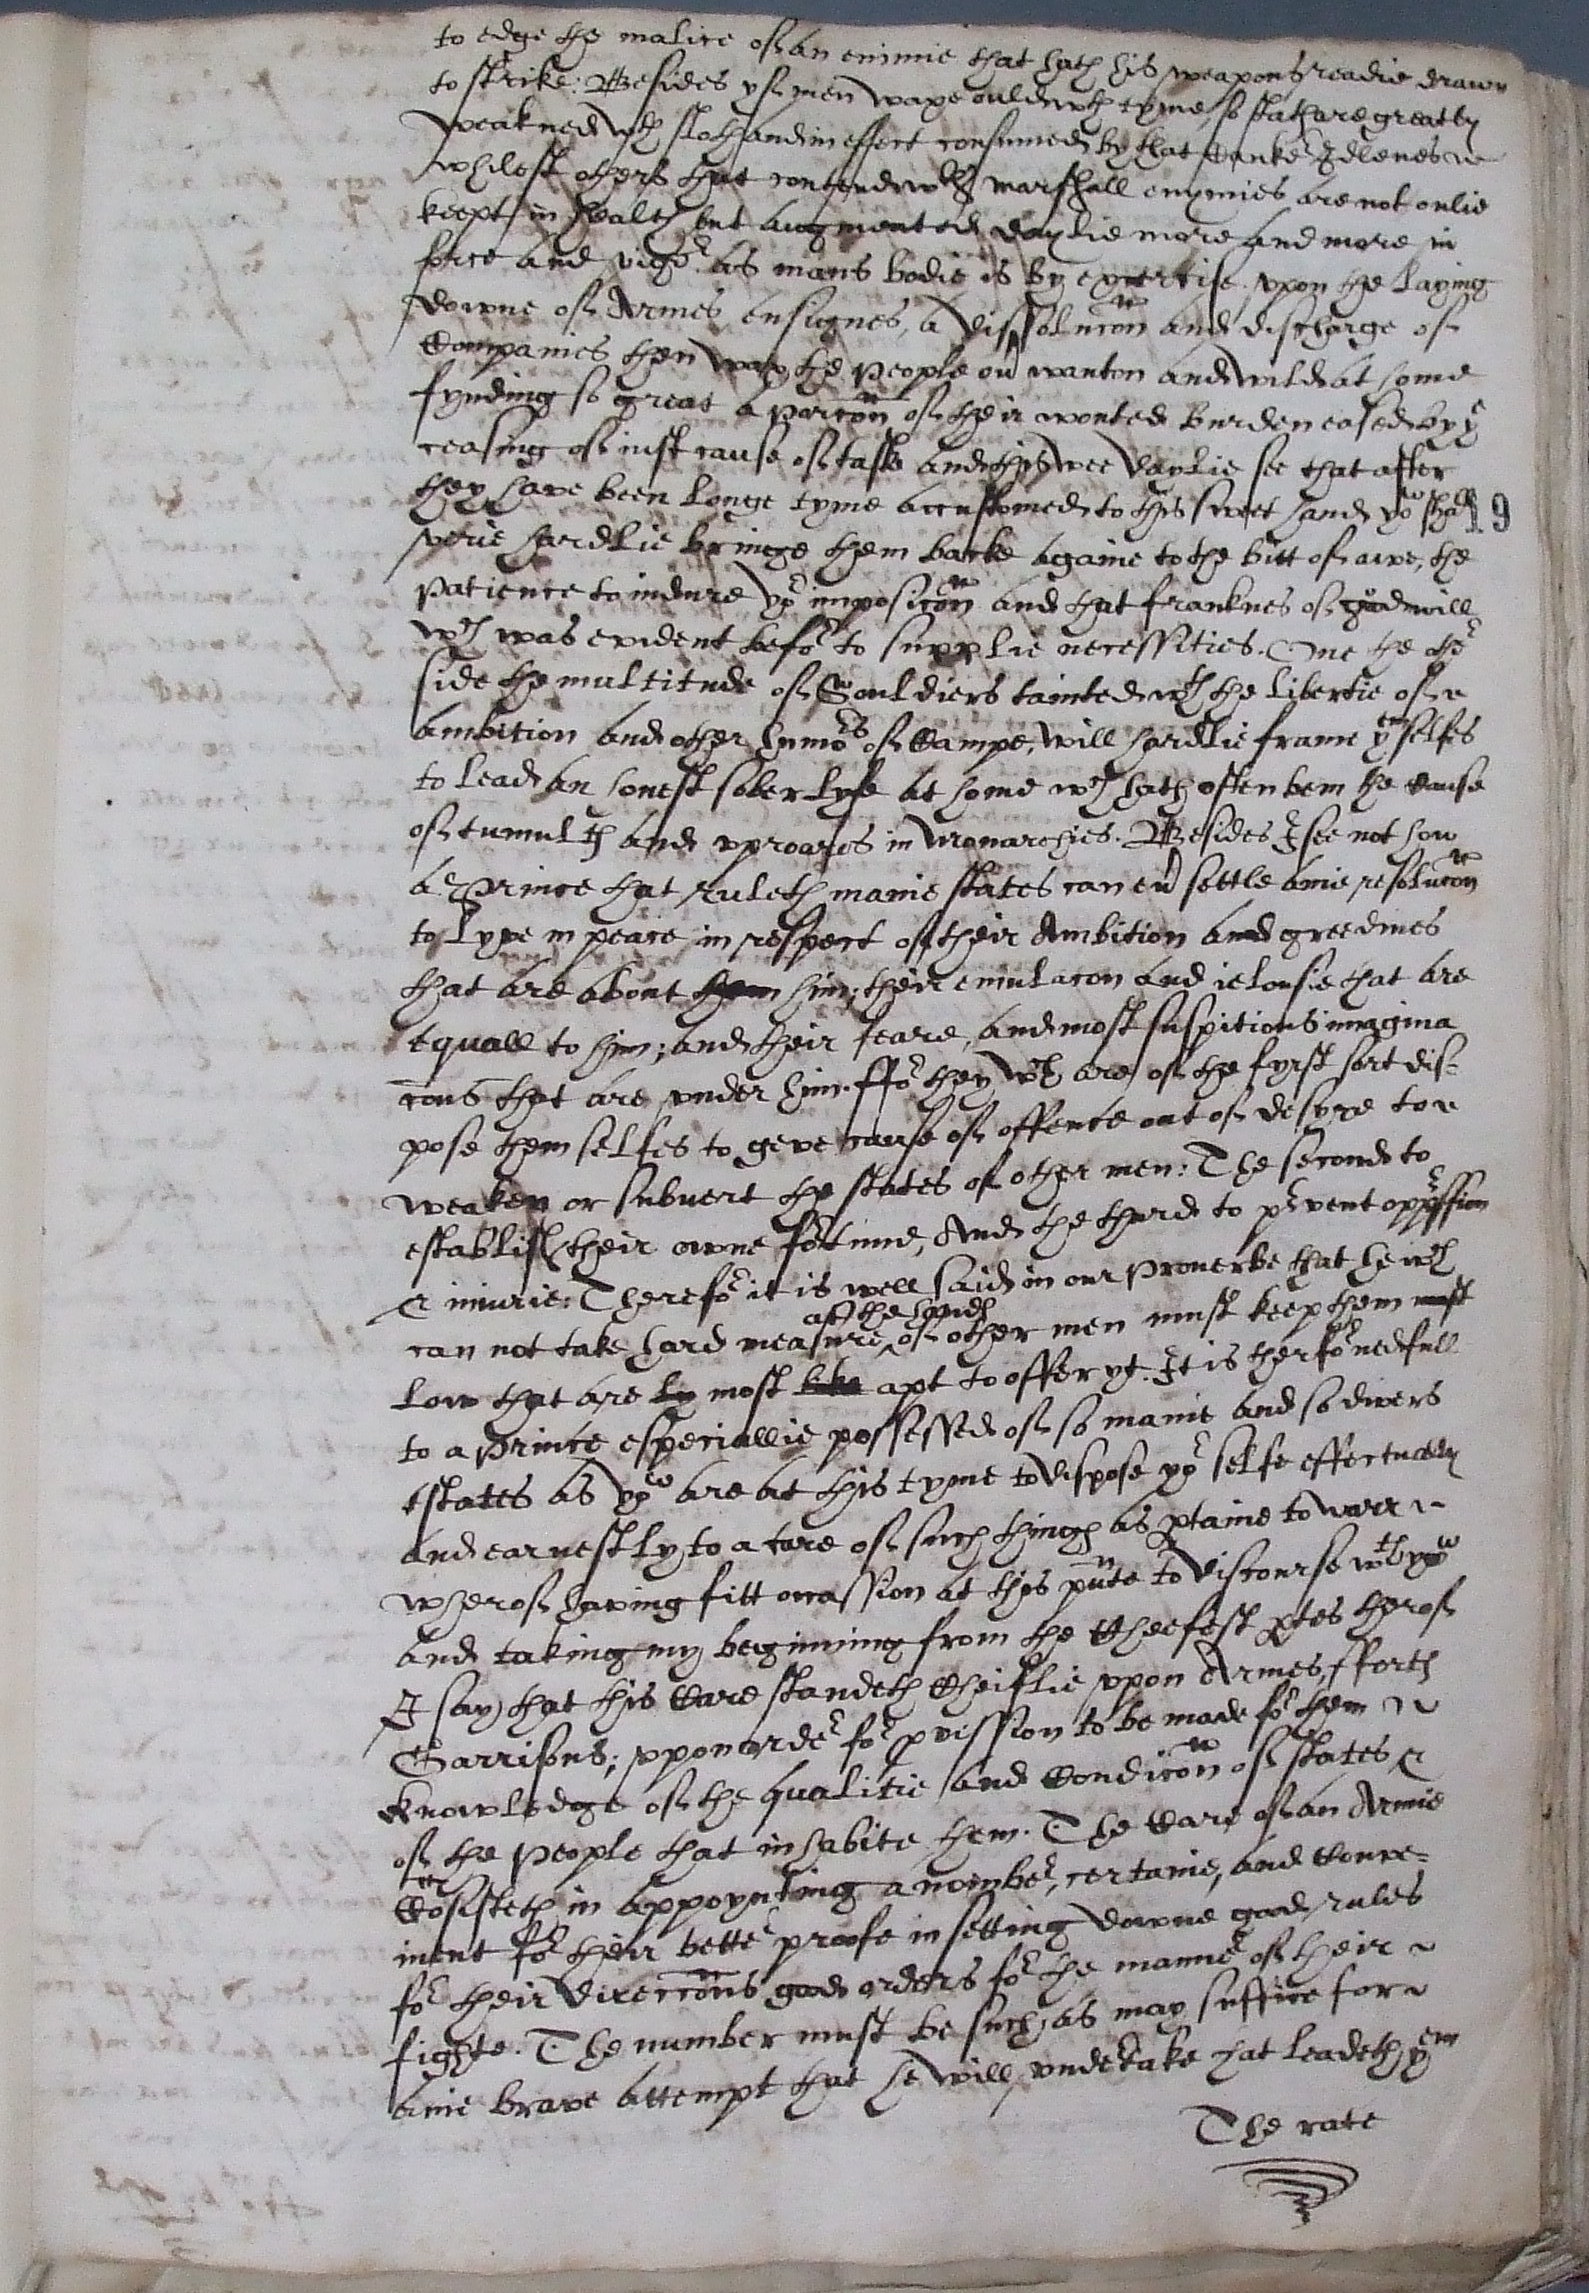 to edge the malice of an enimie that hath his weapons readie drawn
to strike: Besides yf men waxe ould wth tyme, so stat are greatly
weakned wth sloth and in effect consumed by that Canker Idlenes
whilest others that contend wth marshall enymies are not onlie
keept in health but augmented daylie more and more in
force and vigor as mans bodie is by exercise. vpon the laying
downe of Armes ensignes, a dissolucon and discharge of
Companies then wax the people ou wanton and wild at home
fynding so great a porcon of their wonted burden eased by ye
ceasing of iust cause of taske and this wee daylie see that after
they have been longe tyme accustomed to this sweet hand yow shall
verie hardlie bringe them backe againe to the bitt of awe, the
patience to indure yor imposicon and that franknes of goodwill
wch was evident befor to supplie necessities. One the other
side the multitude of Souldiers tainted wth the libertie of
ambition and other humors of Campe, will hardlie frame yem selfes
to lead an honest sober lyfe at home wch hath often bein the cause
of tumults and vproares in Monarchies. Besides I see not how
a Prince that ruleth manie states can eu settle anie resolucon
to lyve in peace in respect of their Ambition and greedines
that are about him; their emulacon and ielousie that are
equall to him; and their feare, and most suspitious imagina
cons that are vnder him. ffor they wch are of the fyrst sort dis-
pose themselfes to geve cause of offence out of desyre to
weaken or subuert the states of other men: The second to
establish their owne fortune, And the third to prvent oppression
& iniurie: Therefor it is well said in our prouerbe that he wch
can not take hard measure at the hands of other men must keep them
low that are most apt to offer yt. It is therfor nedfull
to a Prince especiallie possessed of so manie and so divers
estates as yow are at this tyme to dispose yor selfe effectually
and earnestly to a care of such things as ptaine to warr
wherof having fitt occassion at this pnte to discourse wth yow
and taking my beginning from the Cheefest ptes therof
I say that this Care standeth Cheiflie vpon Armes, fforts
Garrisons; vpon order for pvission to be made for them
knowledge of the qualitie and Condicon of states &
of the people that inhabite them. The Care of an Armie
Cosisteth in appoynting a nomber, certaine, and Conve-
inent for their better proofe in setting downe good rules
for their direccons good orders for the manner of their
fighte. The number must be such as may suffice for
anie brave attempt that he will vndertake that leadeth yem
The rate
19